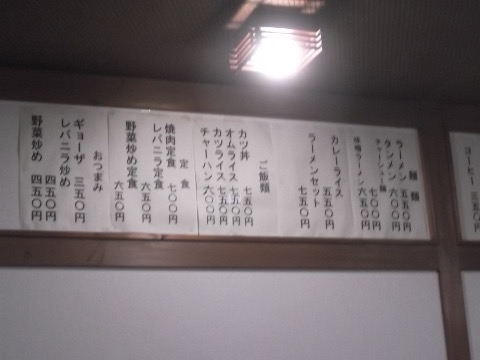 麺類
ラーメン 五五〇円
タンメン 六〇〇円
チャーシュー麺 七〇〇円
味噌ラーメン 六五〇円
カレーライス 五五〇円
ラーメンセット 七五〇円
ご飯類
カツ丼 七五〇円
オムライス 七五〇円
カツライス 七五〇円
チャーハン 六〇〇円
定食
焼肉定食 七〇〇円
レバニラ定食 六五〇円
野菜炒め定食 六五〇円
おつまみ
ギョーザ 三五〇円
レバニラ炒め 四五〇円
野菜炒め 四五〇円
コーヒー 三五〇円